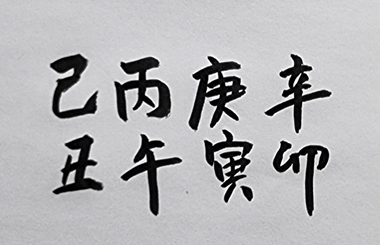 己丙庚辛
丑午寅卯